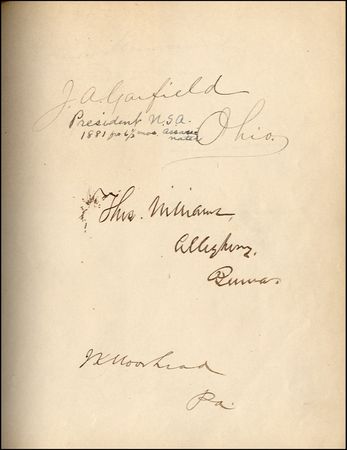 J. A. Garfield
Ohio.
President U.S.A.
1881 for 6½ mos assassi
nated
Thos. Williams,
Allegheny,
Penna.
J K Moorhead
Pa.